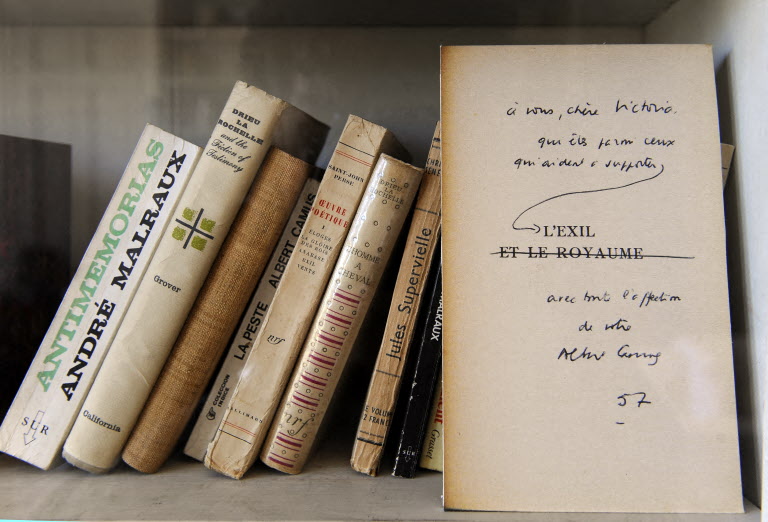 ANTIMEMORIAS
ANDRÉ MALRAUX
SUR
DRIEU
LA
ROCHELLE
and the
Fiction of
Testimony
Grover
California
LA PESTE
ALBERT CAMUS
COLECCIÓN
SAINT-JOHN
PERSE
ŒUVRE
POÉTIQUE
I
ELOGES
EXIL
VENTS
nrf
GALLIMARD
DRIEU
LA
L'HOMME
A
CHEVAL
nrf
Jules Supervielle
MALRAUX
SUR
Grasset
à vous, chère Victoria.
qui êtes parmi ceux
qui aident à supporter
L'EXIL
ET LE ROYAUME
avec toute l'affection
de votre
Albert Camus
57